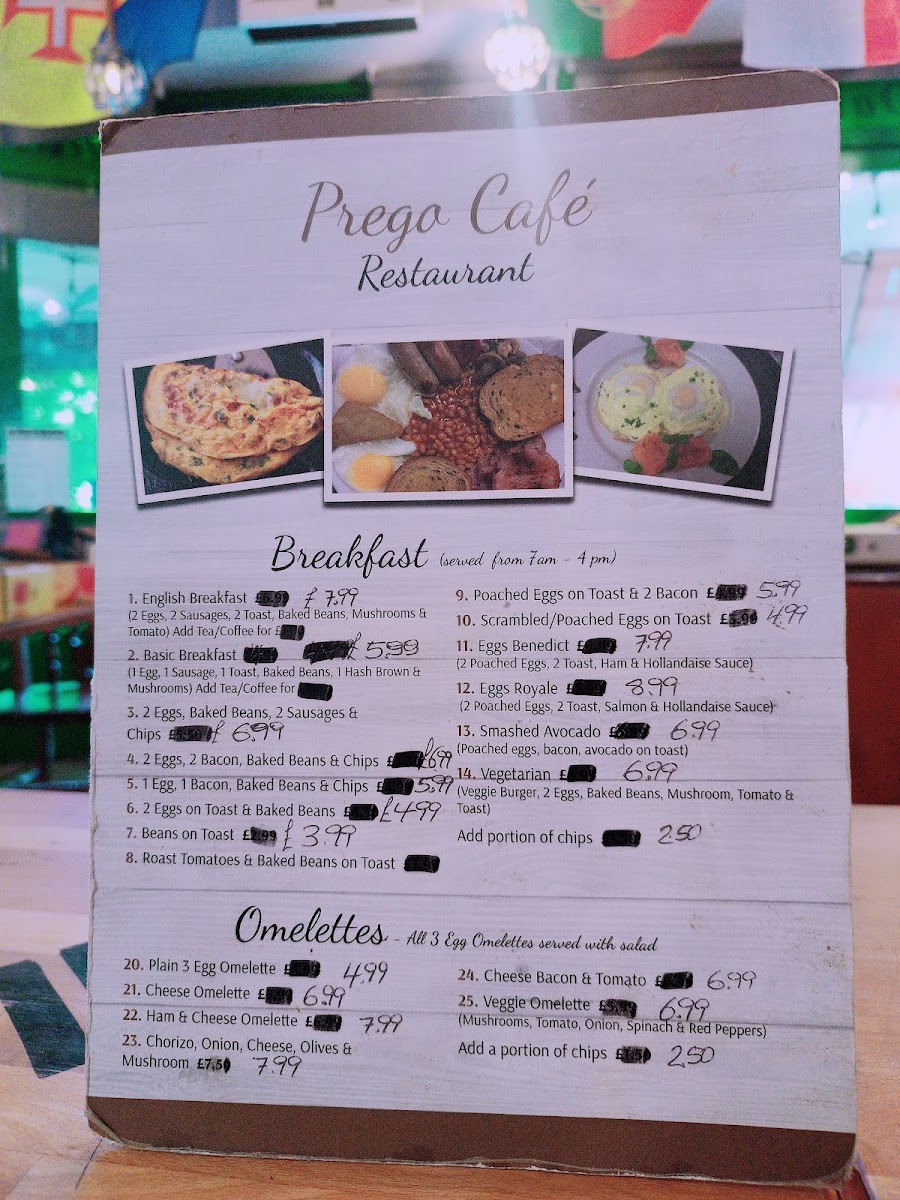 Prego Café
Restaurant
Breakfast (served from 7am - 4 pm)
1. English Breakfast £ 7.99
(2 Eggs, 2 Sausages, 2 Toast, Baked Beans, Mushrooms &
Tomato) Add Tea/Coffee for £
2. Basic Breakfast £ 5.99
(1 Egg, 1 Sausage, 1 Toast, Baked Beans, 1 Hash Brown &
Mushrooms) Add Tea/Coffee for
3. 2 Eggs, Baked Beans, 2 Sausages &
Chips £ 6.99
4. 2 Eggs, 2 Bacon, Baked Beans & Chips £6.99
5. 1 Egg, 1 Bacon, Baked Beans & Chips 5.99
6. 2 Eggs on Toast & Baked Beans £4.99
7. Beans on Toast £ 3.99
8. Roast Tomatoes & Baked Beans on Toast
9. Poached Eggs on Toast & 2 Bacon 5.99
10. Scrambled/Poached Eggs on Toast 4.99
11. Eggs Benedict 7.99
(2 Poached Eggs, 2 Toast, Ham & Hollandaise Sauce)
12. Eggs Royale 8.99
(2 Poached Eggs, 2 Toast, Salmon & Hollandaise Sauce)
13. Smashed Avocado 6.99
(Poached eggs, bacon, avocado on toast)
14. Vegetarian 6.99
(Veggie Burger, 2 Eggs, Baked Beans, Mushroom, Tomato &
Toast)
Add portion of chips 2.50
Omelettes - All 3 Egg Omelettes served with salad
20. Plain 3 Egg Omelette 4.99
21. Cheese Omelette 6.99
22. Ham & Cheese Omelette 7.99
23. Chorizo, Onion, Cheese, Olives &
Mushroom £7.50 7.99
24. Cheese Bacon & Tomato 6.99
25. Veggie Omelette 6.99
(Mushrooms, Tomato, Onion, Spinach & Red Peppers)
Add a portion of chips 2.50